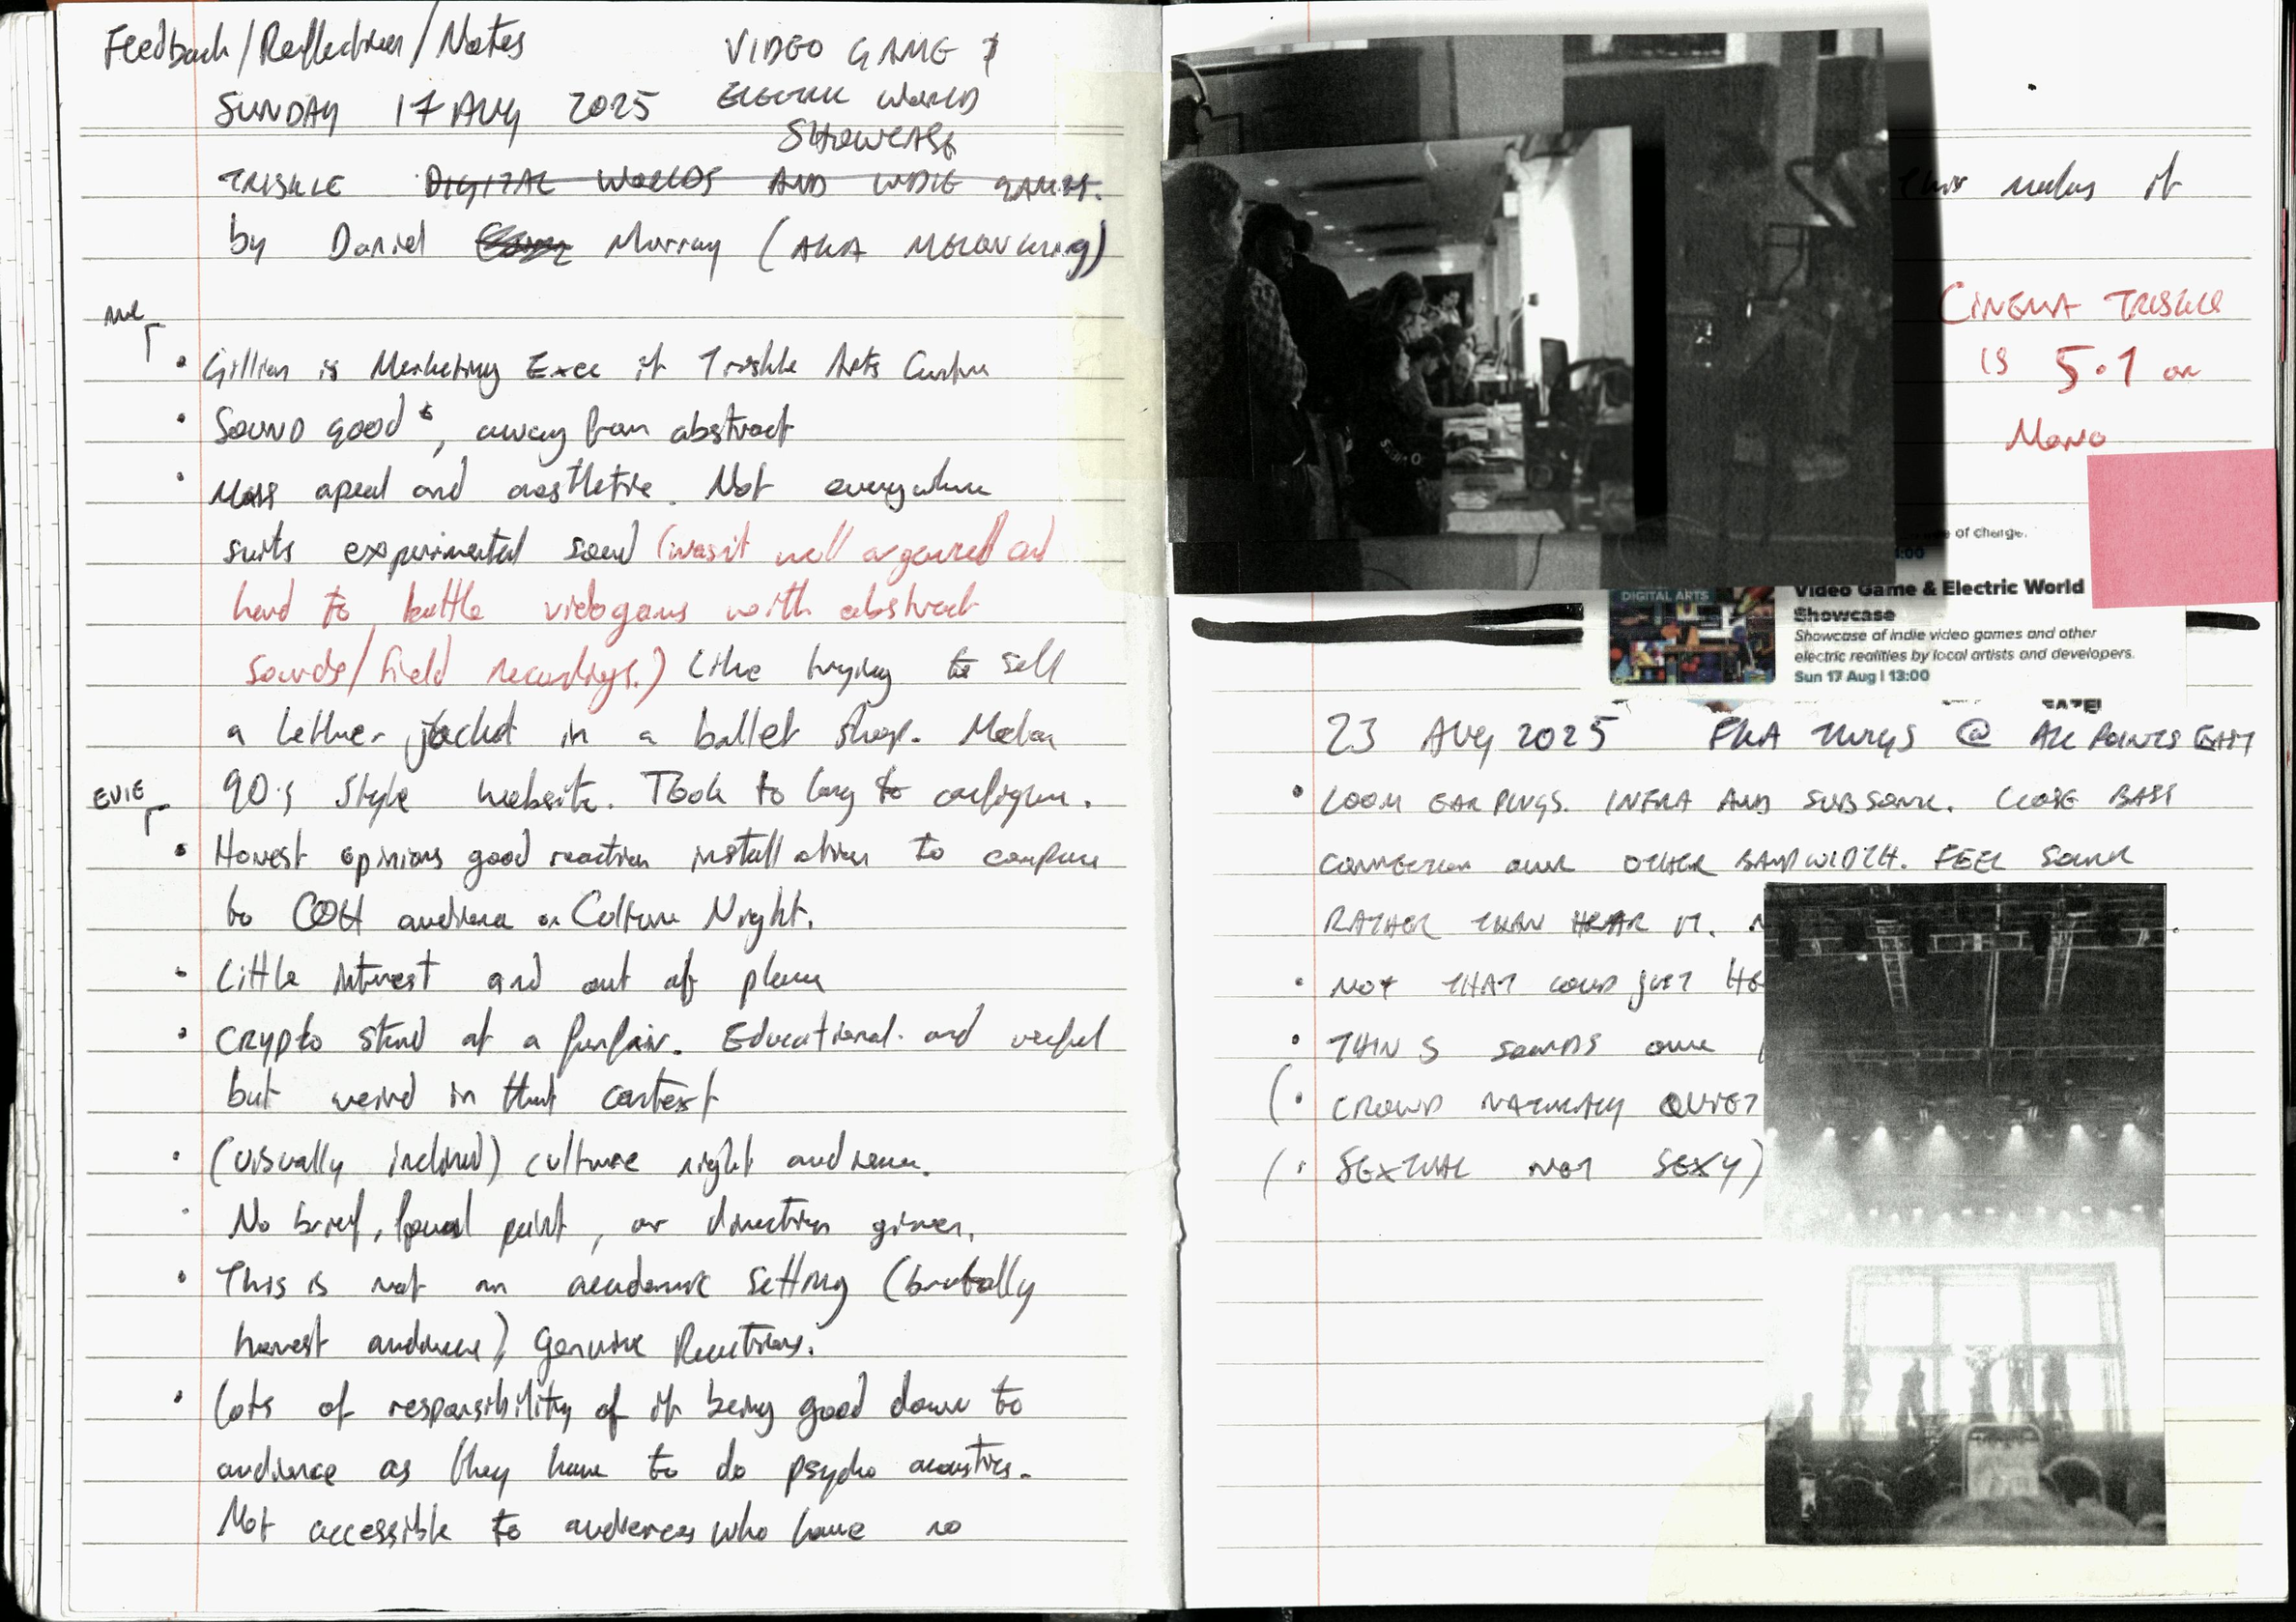 Feedback/Reflection/Notes
VIDEO GAME &
SUNDAY 17 AUG 2025
ELECTRIC WORLD
SHOWCASE
TRISKLE DIGITAL WORLDS AND INDIE GAMES.
by Daniel Murray (AKA MELONKING)
ME
• Gillian is Marketing Exec it Triskle Arts Centre
• SOUND good, away from abstract
• Mass apeal and aesthetic. Not everywhere
suits experimental sound (wasn't well organised and
hard to battle videogames with abstract
sounds/field recordings.) Like trying to sell
a lether jacket in a ballet shop.
90's style website. Took to long to configure.
EVIE
• Honest opinions good reaction installation to compare
to COH audience on Culture Night.
• Little interest and out of place
• Crypto stand at a funfair. Educational and useful
but weird in that context
• (visually inclined) culture night audience.
• No brief, focal point, or direction given.
• This is not an academic setting (brutally
honest audience) Genuine Reactions.
• Lots of responsibility of it being good down to
audience as they have to do psycho acoustics.
Not accessible to audiences who have no
This makes it
CINEMA TRISKLE
IS 5.1 or
Mono
of charge.
:00
DIGITAL ARTS
Video Game & Electric World
Showcase
Showcase of indie video games and other
electric realities by local artists and developers.
Sun 17 Aug | 13:00
23 AUG 2025 FKA Twigs @ ALL POINTS EAST
• LOOM EAR PLUGS. INFRA AND SUBSONIC. CLOSE BASS
CONNECTION OVER OTHER BANDWIDTH. FEEL SOUND
RATHER THAN HEAR IT.
• NOT THAT LOUD JUST
• THIN S SOUNDS OVER
(• CROWD NATURALLY QUIET
(• SEXUAL NOT SEXY)